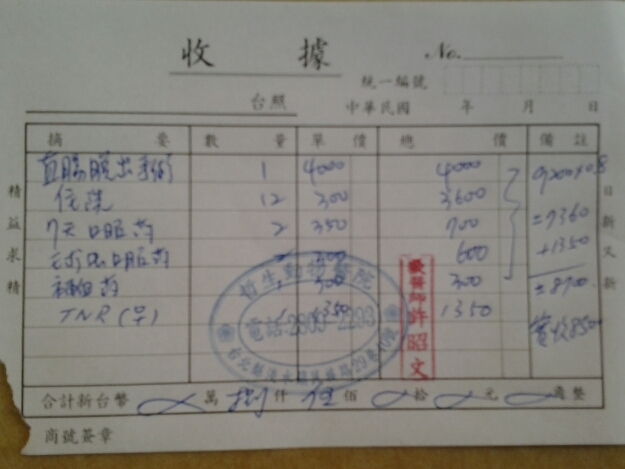 收據 No.
統一編號
台照 中華民國 年 月 日
摘要 數量 單價 總價 備註
直腸脫出手術 1 4000 4000 9200×0.8
住院 12 300 3600
7天口服药 2 350 700 =7360
口服药 600 +1350
300 =8700
TNR(早) 1350 1350 實收8500
哲生動物醫院
電話:
獸醫師許昭文
合計新台幣 萬 捌仟 伍佰 拾 元 整
商號簽章
精益求精
日新又新